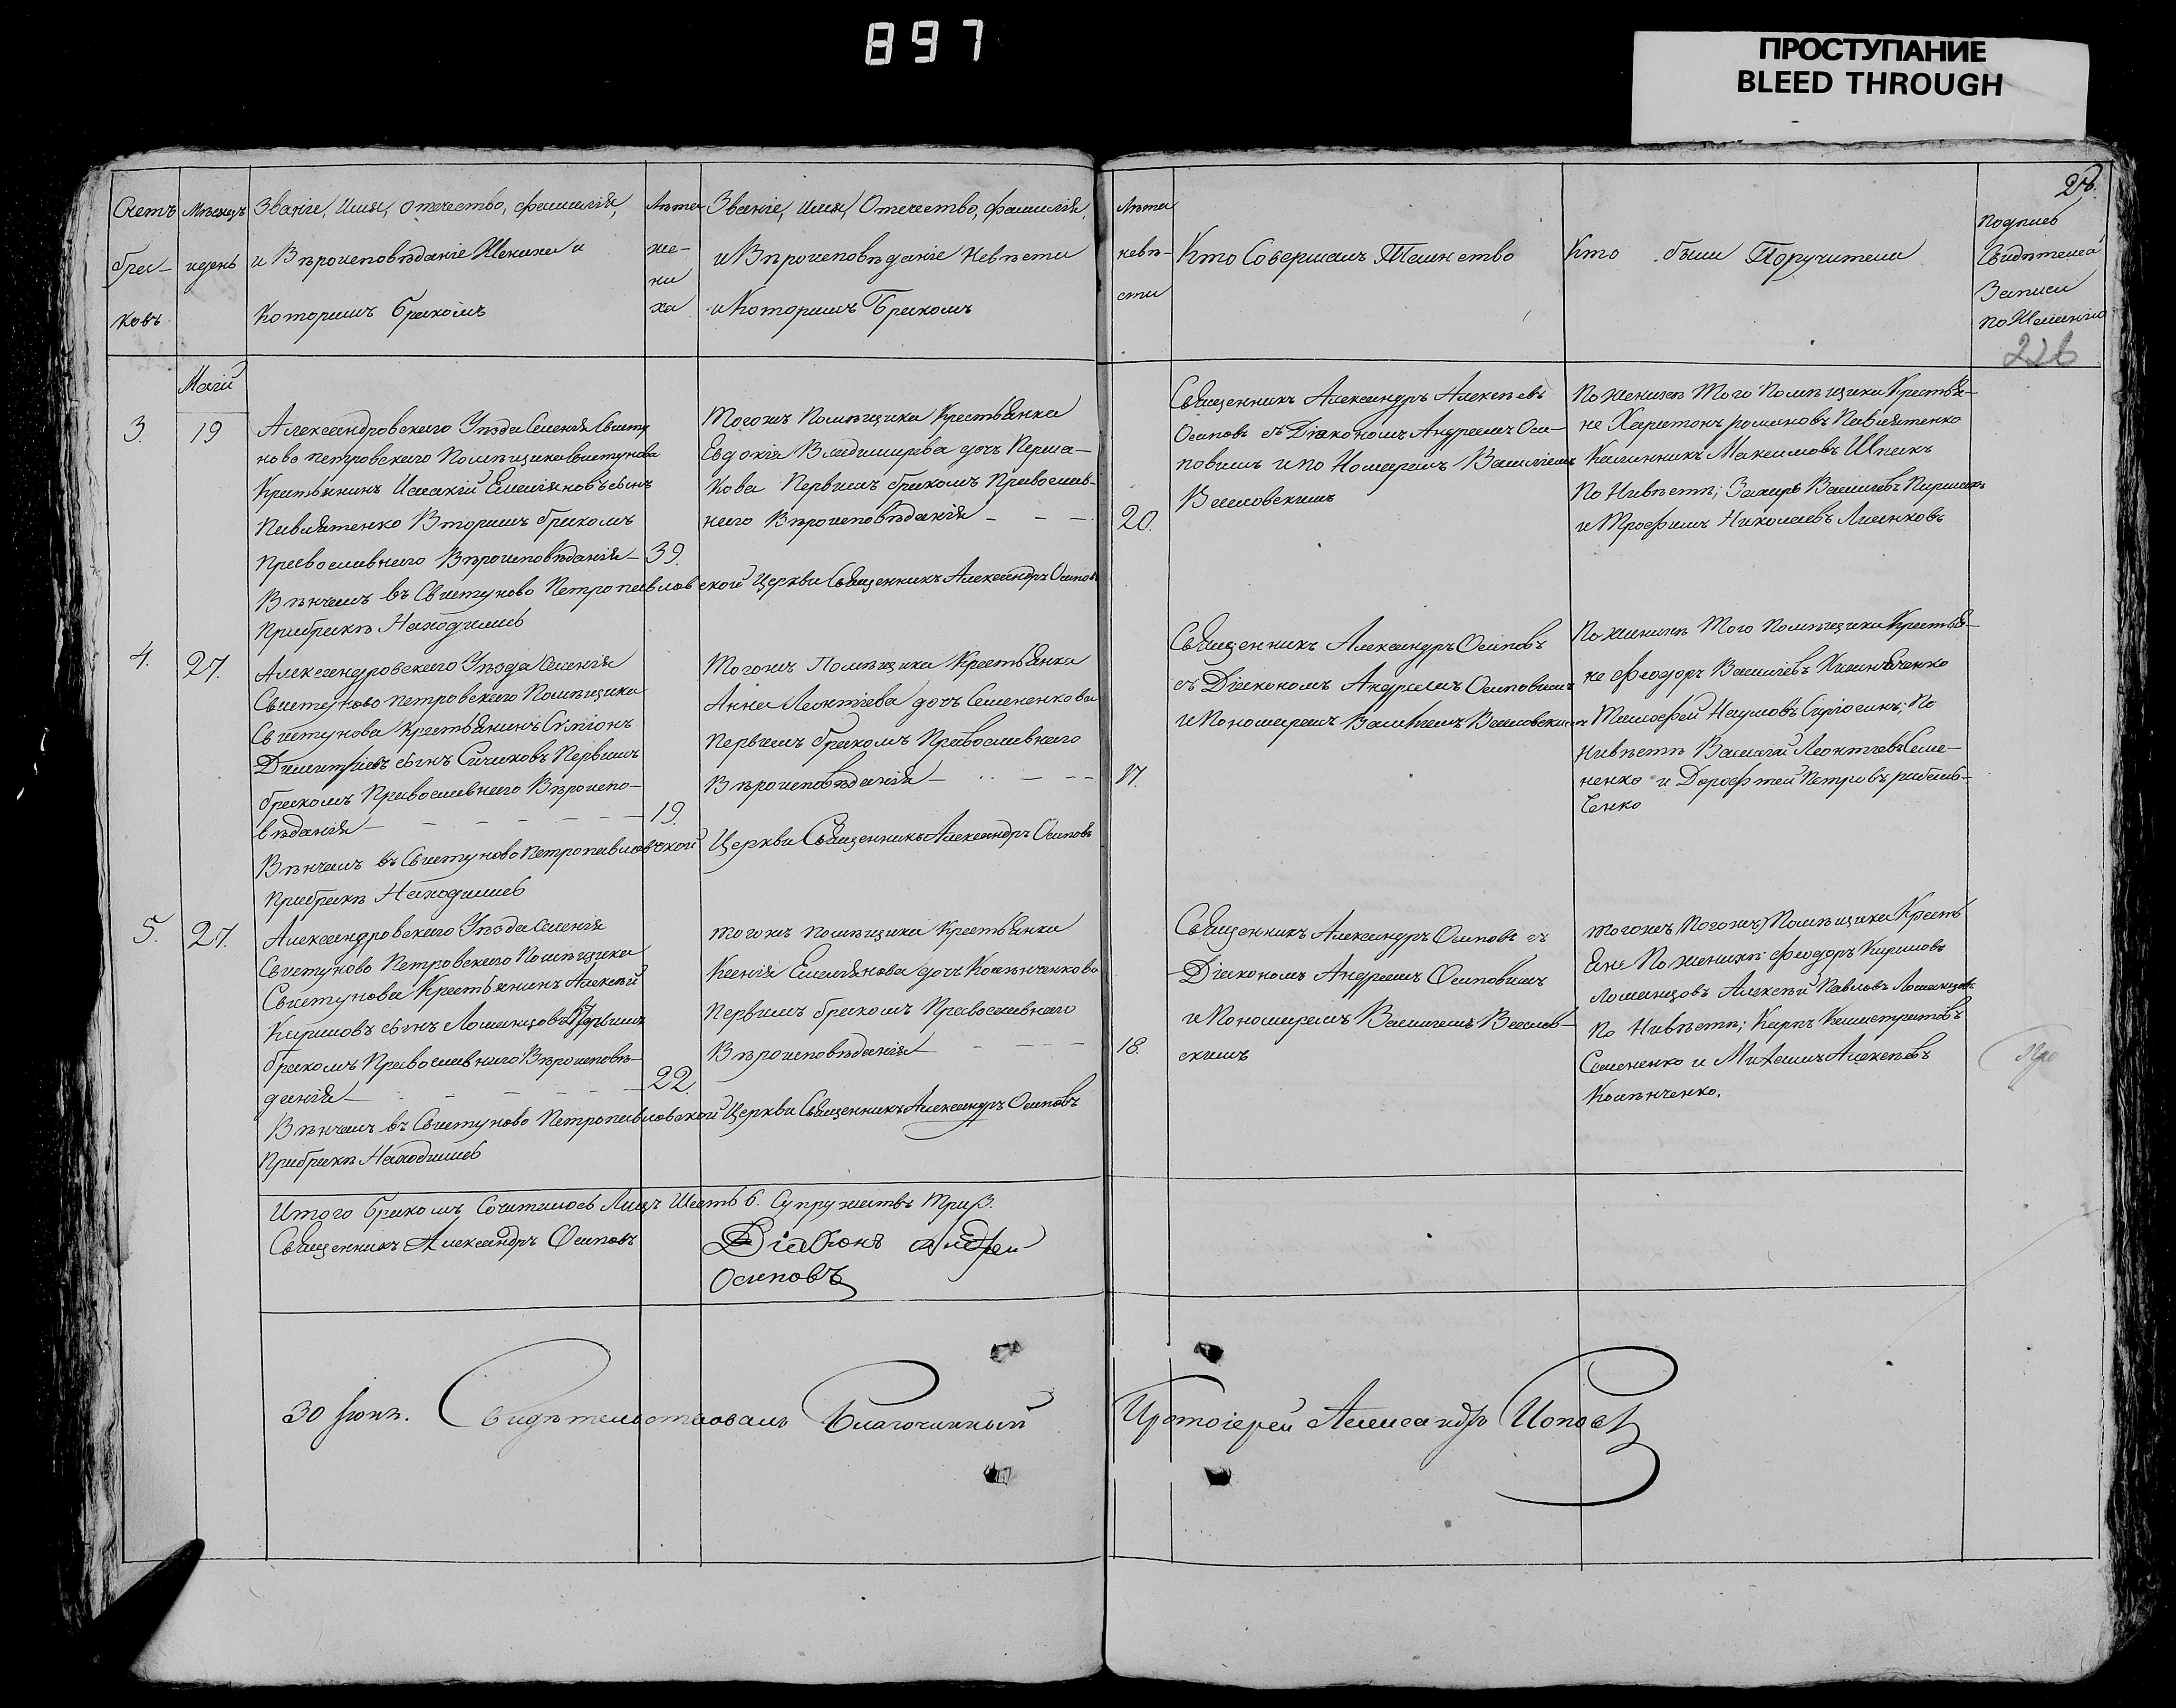 897
ПРОСТУПАНИЕ
BLEED THROUGH
28.
226
Счетъ
брa-
ковъ
Мѣсяцъ
идень
Званіе, Имя, отечество, фамилія,
и Вѣроисповѣданіе Жениха и
Которимъ бракомъ
Лѣта
же-
ни
ха
Званіе, имя, Отечество, фамилія,
и Вѣроисповѣданіе Невѣсти
и Которимъ Бракомъ
Лѣта
невѣ-
сти
Кто Совершалъ Таинство
Кто были Поручители
подпись
Свидѣтелей
Записи
по Желанію
Маій
3.
19
Александровскаго Уѣзда Селенія Свисту
ново петровскаго Помѣщика Свистунова
Крестьянинъ Исакій Емеліяновъ сынъ
Павлятенко Вторимъ бракомъ
православнаго Вѣроисповѣданія
39.
Вѣнчалъ въ Свистуново Петропавловской Церкви Священникъ Александръ Осиповъ
Прибракѣ Находились
Тогожъ Помѣщика Крестьянка
Евдокія Владимирова дочь Перша-
кова Первимъ бракомъ Православ-
наго Вѣроисповѣданія
20.
Священникъ Александръ Алексѣевъ
Осиповъ съ Діякономъ Андреемъ Оси-
повимъ и по Номаремъ Василіемъ
Василовскимъ
По женихѣ Того Помѣщика Крестья-
не Харитонъ романовъ Павлятенко
Калинникъ Максимовъ Шпакъ
По Нивѣстѣ; Захаръ Василіевъ Першаковъ
и Трофимъ Николаевъ Лисенковъ
4.
27.
Александровскаго Уѣзда Селенія
Свистуново петровскаго Помѣщика
Свистунова Крестьянинъ
Димитріевъ сынъ Сичиковъ Первимъ
бракомъ Православнаго Вѣроиспо-
вѣданія
19.
Вѣнчалъ въ Свистуново Петропавловской Церкви Священникъ Александръ Осиповъ
Прибракѣ Находились
Тогожъ Помѣщика Крестьянка
Анна Леонтіева дочь Семененкова
Первимъ бракомъ Православнаго
Вѣроисповѣданія
17.
Священникъ Александръ Осиповъ
съ Діякономъ Андреемъ Осиповимъ
и Пономаремъ Василіемъ Василовскимъ
По женихѣ Того Помѣщика Крестья-
не Феодоръ Василіевъ
Тимофей Наумовъ По
Нивѣстѣ Василій Леонтіевъ Семе-
ненко и Дорофтей Петровъ рибаль-
ченко
5.
27.
Александровскаго Уѣзда Селенія
Свистуново Петровскаго Помѣщика
Свистунова Крестьянинъ Алексѣй
Кириловъ сынъ Ломанцовъ Первимъ
бракомъ Православнаго Вѣроисповѣ-
данія
22.
Вѣнчалъ въ Свистуново Петропавловской Церкви Священникъ Александръ Осиповъ
Прибракѣ Находились
тогожъ помѣщика Крестьянка
Ксенія Емеліянова дочь Колѣнченкова
Первимъ бракомъ Православнаго
Вѣроисповѣданія
18.
Священникъ Александръ Осиповъ съ
Діякономъ Андреемъ Осиповимъ
и Пономаремъ Василіемъ Василов-
скимъ
тогожъ Помѣщика Кресть
яне По женихѣ: Феодоръ Кириловъ
Ломанцовъ Алексѣй Павловъ Ломанцовъ
По Нивѣстѣ; Карпъ Калистратовъ
Семененко и Михаилъ Алексѣевъ
Колѣнченко.
Итого бракомъ Сочиталось Лицъ Шесть 6. Супружествъ Три 3.
Священникъ Александръ Осиповъ
Діаконъ Андрей
Осиповъ
30 Іюнѣ. Свидѣтельствовалъ Благочинный Протоіерей Александръ Поповъ